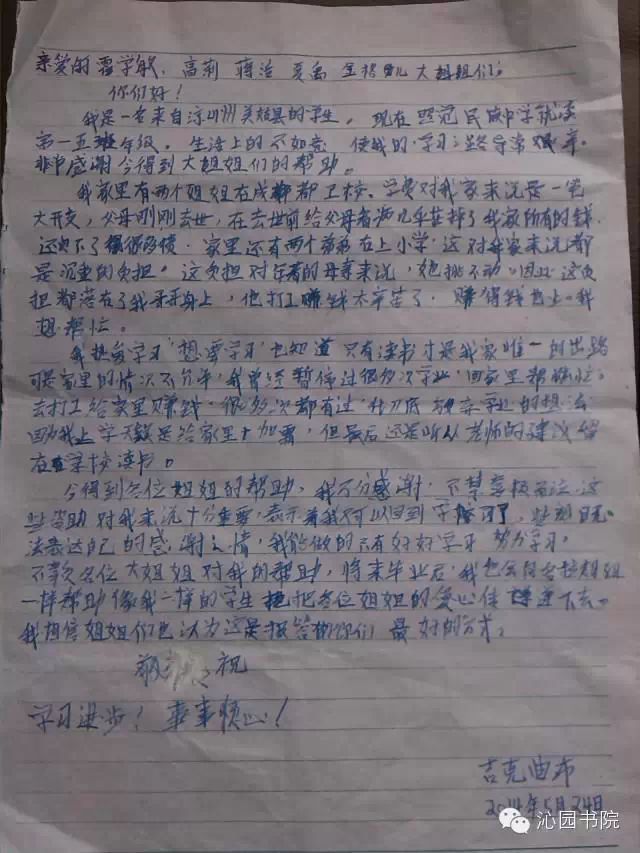 亲爱的霍学敏、高莉 蒋洁 夏禹 大姐姐们：
你们好！
我是一名来自凉山州美姑县的学生。现在 民族中学就读
第一五班年级。生活上的不如意 使我的学习之路异常艰辛。
非常感谢今得到大姐姐们的帮助。
我家里有两个姐姐在成都 都卫校、学费对我家来说是一笔
大开支，父母刚刚去世，在去世前给父母看病几乎花掉了我家所有的钱
还欠下了 债。家里还有两个弟弟在上小学，这对我家来说都
是沉重的负担。这负担对年老的母亲来说，她挑不动。因此这负
担都落在了我哥哥身上，他打工赚钱太辛苦了。赚得钱 我
想帮忙。
我热爱学习，想要学习，也知道 只有读书才是我家唯一的出路
可是家里的情况不允许，我曾经暂停过很多次学业，回家里帮忙
去打工给家里赚钱。很多次都有过 学业的想法
因为我上学 是给家里 加 ，但最后还是听从老师的建议留
在学校读书。
今得到各位姐姐的帮助，我万分感谢，不禁 ，这
些资助对我来说十分重要，表示着我可以回到学校了， 无
法表达自己的感谢之情，我能做的只有好好学习 努力学习，
不辜负各位大姐姐对我的帮助，将来毕业后，我也会向各位姐姐
一样帮助像我一样的学生 把各位姐姐的爱心传递下去。
我相信姐姐们也认为这是报答你们最好的方式。
祝
学习进步！事事顺心！
吉克曲布
2014年5月24日
沁园书院